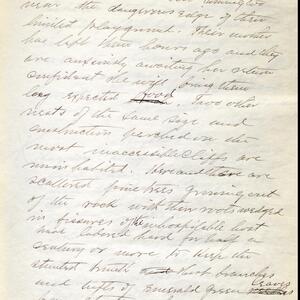 near the dangerous edge of their
limited playground. Their mother
has left them hours ago and they
are anxiously awaiting her return
confident she will bring them
long expected food. Two other
nests of the same size and
construction perched on the
most inaccessible cliffs are
uninhabited. Here and there are
scattered pine trees growing out
of the rock with their roots wedged
in fissures of the inhospitable host
have labored hard for half a
century or more to keep the
stunted trunk their branches
and tufts of emerald green leaves